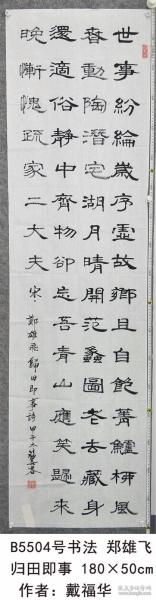 世事紛綸歲序虛故鄉且自飽蓴鱸柳風
春動陶潛宅湖月晴開范蠡圖老去藏身
還適俗靜中齊物卻忘吾青山應笑歸來
晚慚愧疏家二大夫 宋 鄭雄飛歸田即事詩 甲午
B5504号书法 郑雄飞
归田即事 180×50cm
作者：戴福华